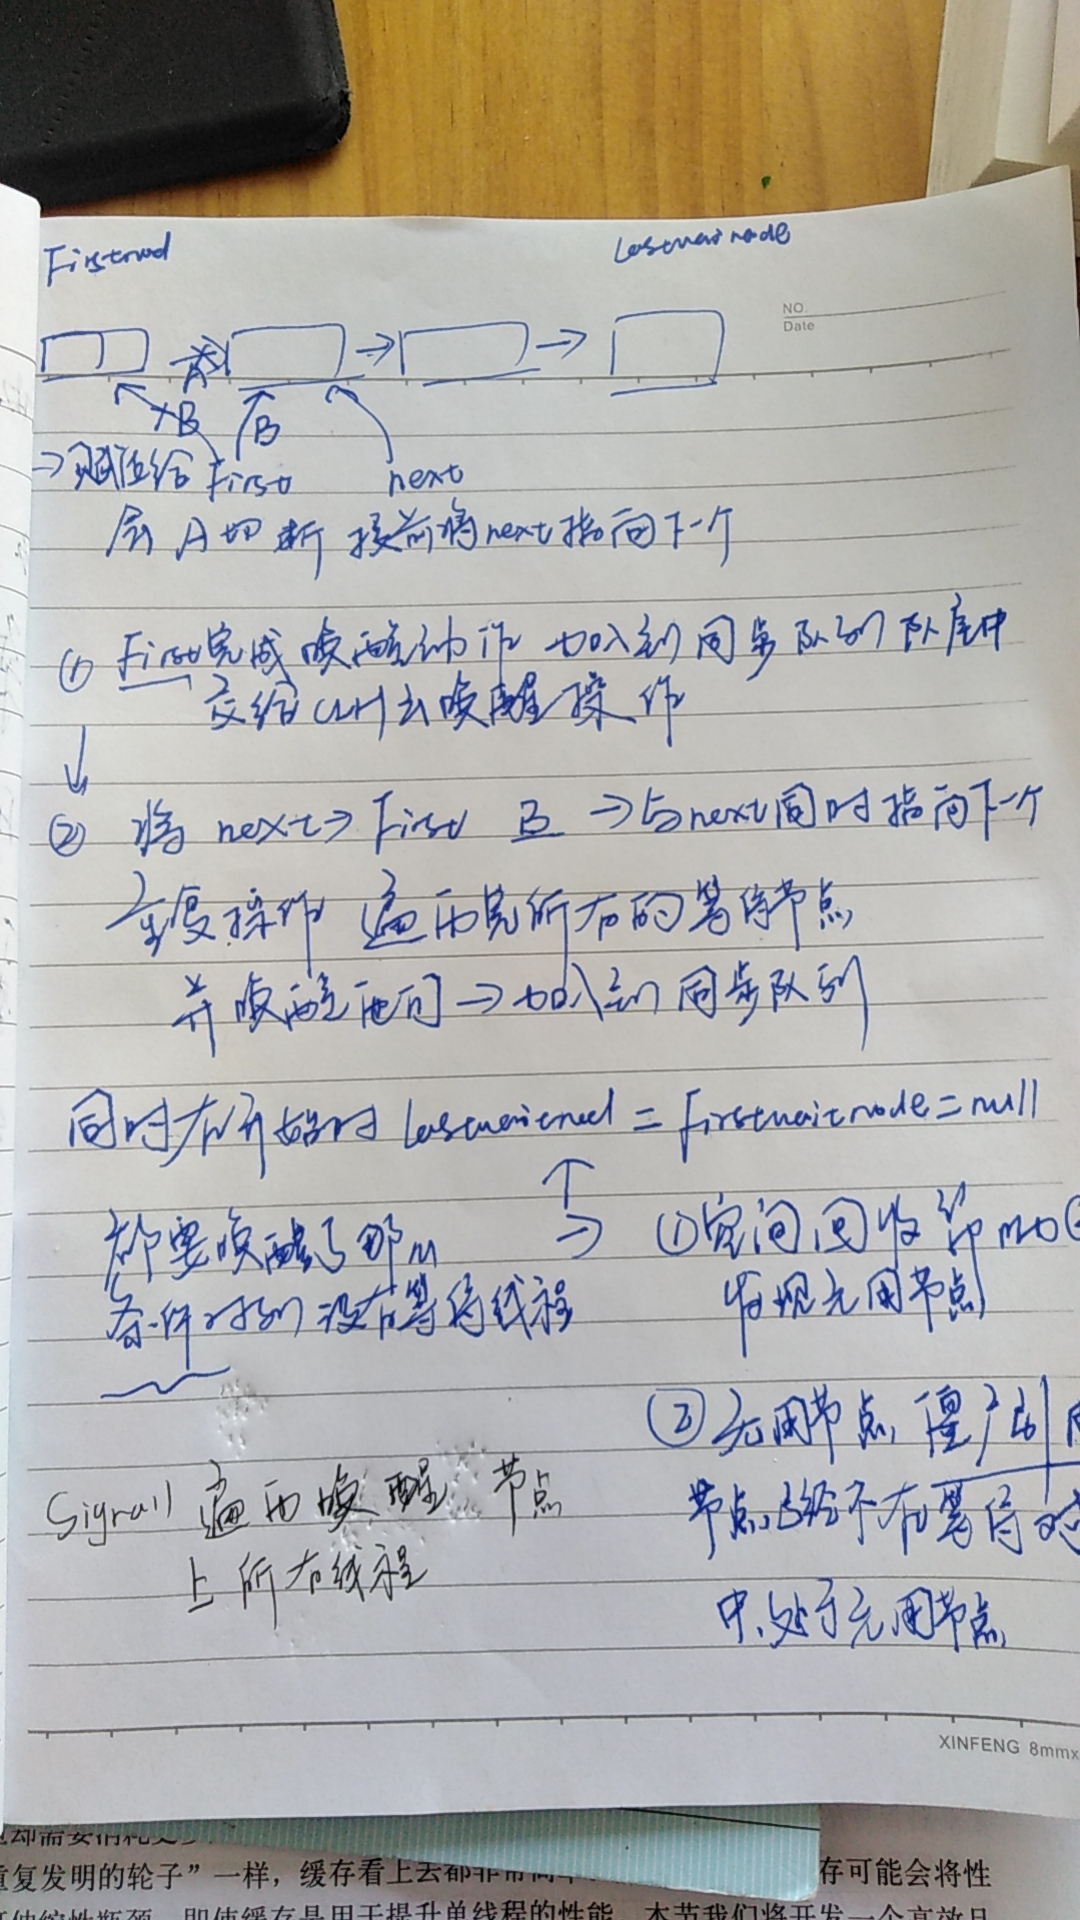 Firstnod
Lastwainode
NO.
Date
A
B
B
→赋值给 First
next
会 A切断 提前将next指向下一个
① First完成唤醒动作 加入到同步队列队尾中
交给CLH去唤醒操作
② 将 next→First 且 →与next同时指向下一个
重复操作 遍历完所有的等待节点
并唤醒他们→加入到同步队列
同时在开始时 Lastwaitnod = Firstwaitnode = null
都要唤醒了那么
→ ①空间回收
条件队列没有等待线程
发现无用节点
② 无用节点
节点已经不在等待
Signall 遍历唤醒 节点
上所有线程
中、处于无用节点
XINFENG 8mmx
重复发明的轮子”一样，缓存看上去都非常简单
存可能会将性
即使缓存是用于提升单线程的性能。本节我们将开发一个高效且